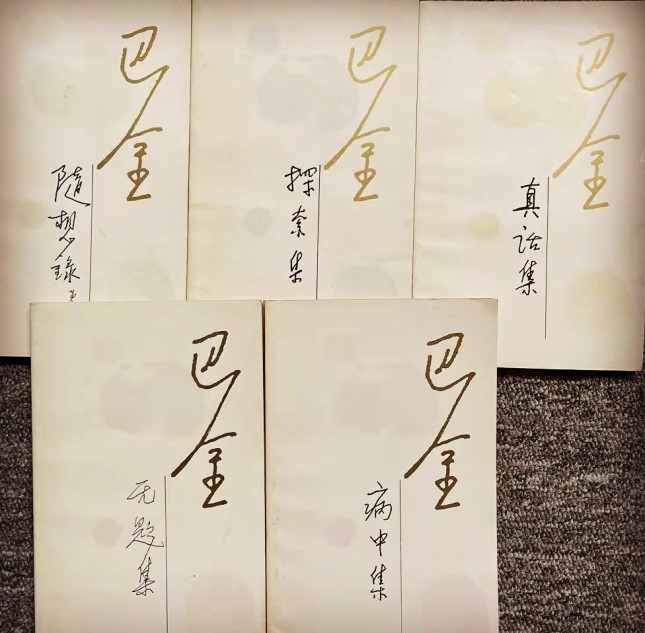 巴金
隨想錄
巴金
探索集
巴金
真话集
巴金
无题集
巴金
病中集